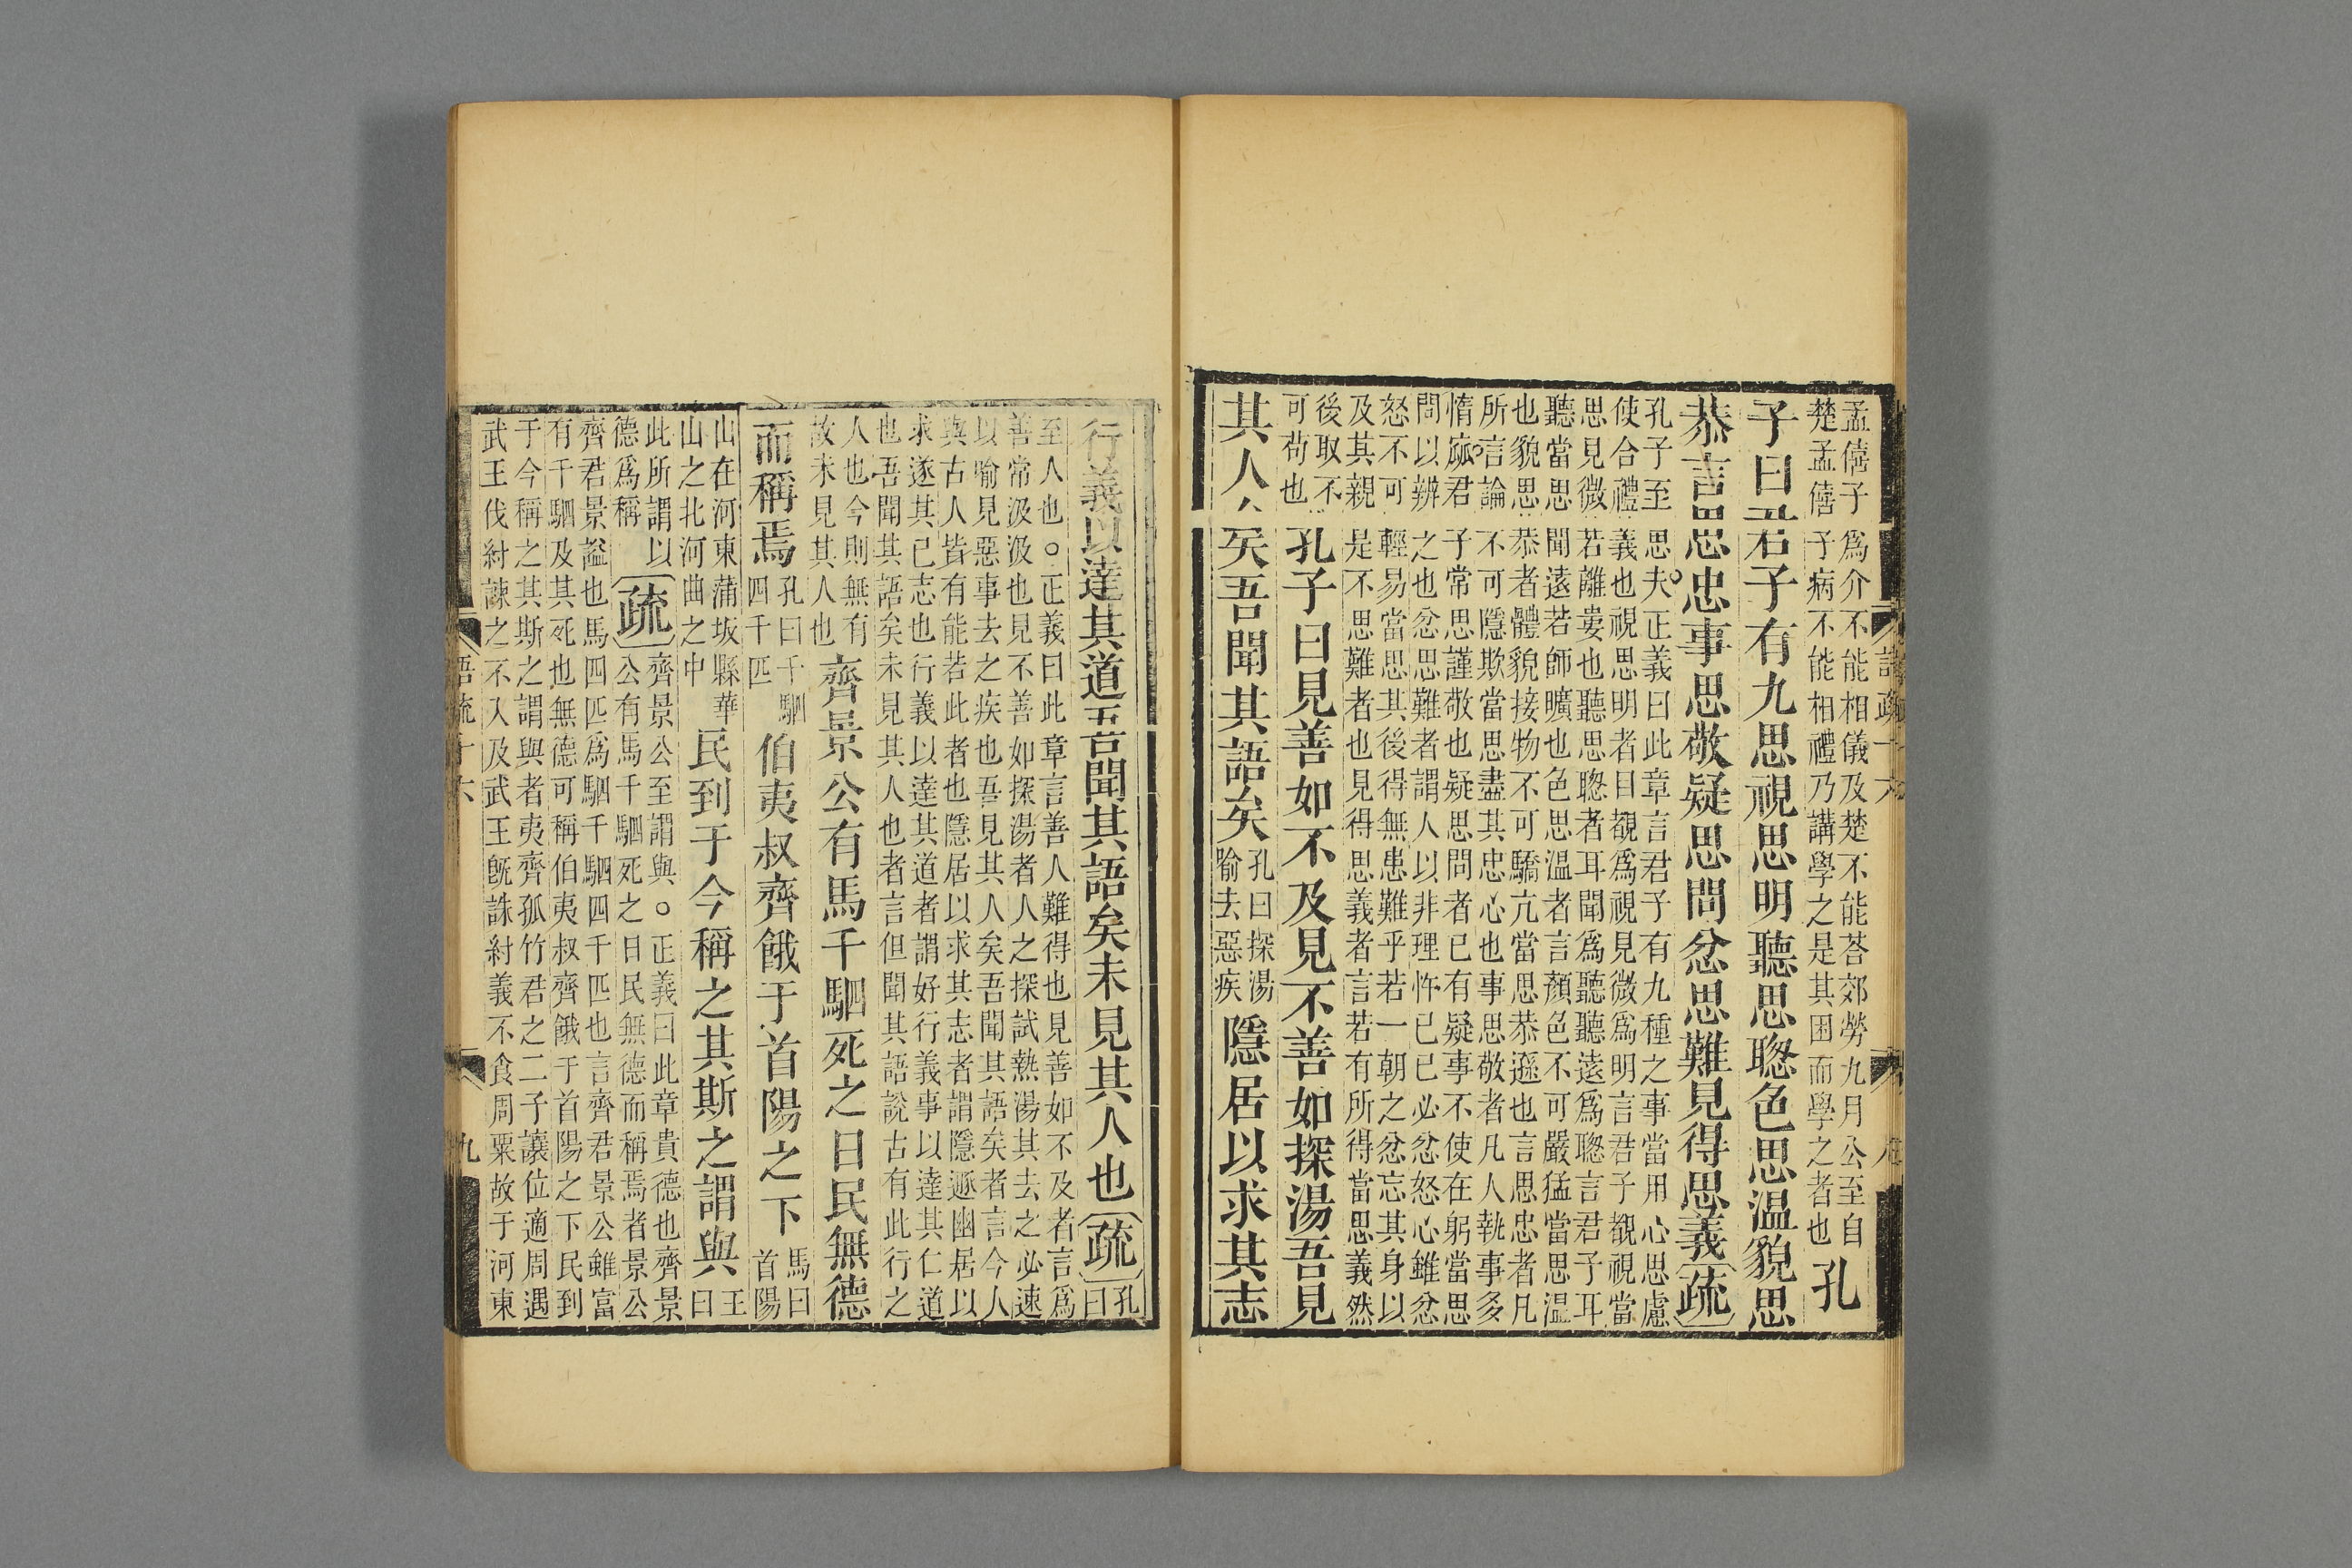 孟僖子爲介不能相儀及楚不能荅郊勞九月公至自
楚孟僖子病不能相禮乃講學之是其困而學之者也
孔
子曰君子有九思視思明聽思聰色思溫貌思
恭言思忠事思敬疑思問忿思難見得思義〔疏〕
孔子至思夫○正義曰此章言君子有九種之事當用心思慮
使合禮義也視思明者目覩爲視見微爲明言君子覩視當
思見微若離婁也聽思聰者耳聞爲聽聽遠爲聰言君子耳
聽當思聞遠若師曠也色思溫者言顏色不可嚴猛當思溫
也貌思恭者體貌接物不可驕亢當思恭遜也言思忠者凡
所言論不可隱欺當思盡其忠心也事思敬者凡人執事多
惰窳君子常思謹敬也疑思問者已有疑事不使在躬當思
問以辨之也忿思難者謂人以非理忤已已必忿怒心雖忿
怒不可輕易當思其後得無患難乎若一朝之忿忘其身以
及其親是不思難者也見得思義者言若有所得當思義然
後取不
可苟也
孔子曰見善如不及見不善如探湯吾見
其人矣吾聞其語矣
孔曰探湯
喻去惡疾
隱居以求其志
行義以達其道吾聞其語矣未見其人也〔疏〕
孔
曰
至人也○正義曰此章言善人難得也見善如不及者言爲
善常汲汲也見不善如探湯者人之探試熱湯其去之必速
以喻見惡事去之疾也吾見其人矣吾聞其語矣者言今人
與古人皆有能若此者也隱居以求其志者謂隱遯幽居以
求遂其已志也行義以達其道者謂好行義事以達其仁道
也吾聞其語矣未見其人也者言但聞其語說古有此行之
人也今則無有
故未見其人也
齊景公有馬千駟死之日民無德
而稱焉
孔曰千駟
四千匹
伯夷叔齊餓于首陽之下
馬曰
首陽
山在河東蒲坂縣華
山之北河曲之中
民到于今稱之其斯之謂與
王
曰
此所謂以
德爲稱
〔疏〕
齊景公至謂與○正義曰此章貴德也齊景
公有馬千駟死之日民無德而稱焉者景公
齊君景謚也馬四匹爲駟千駟四千匹也言齊君景公雖富
有千駟及其死也無德可稱伯夷叔齊餓于首陽之下民到
于今稱之其斯之謂與者夷齊孤竹君之二子讓位適周遇
武王伐紂諫之不入及武王旣誅紂義不食周粟故于河東
語疏十六
九